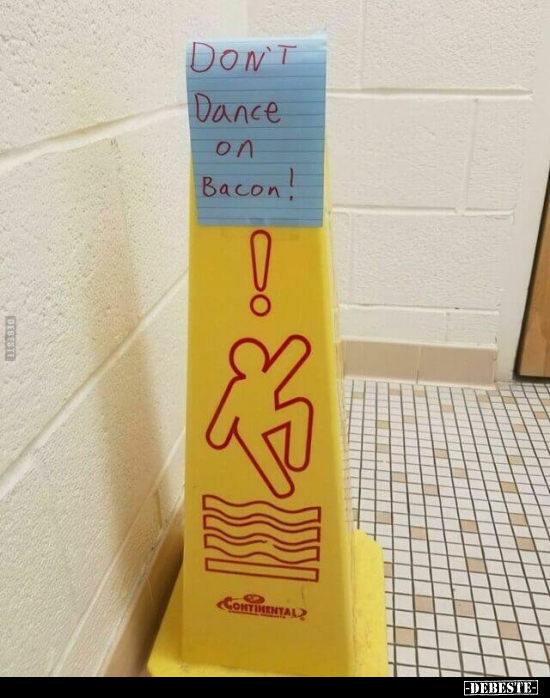 DON'T
Dance
on
Bacon!
!
CONTINENTAL
DEBESTE
-DEBESTE-